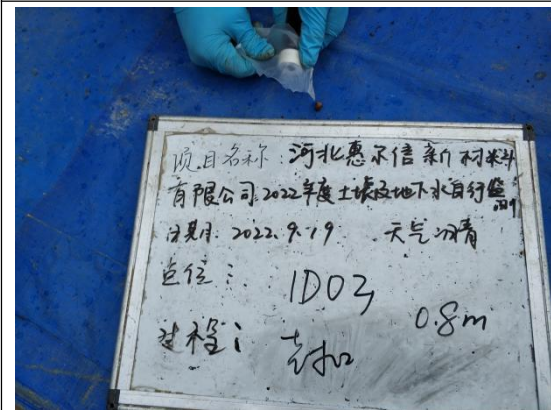 项目名称:河北惠尔信新材料
有限公司2022年度土壤及地下水自行监测
日期:2022.9.19 天气:晴
点位: 1D03
0.8m
过程: